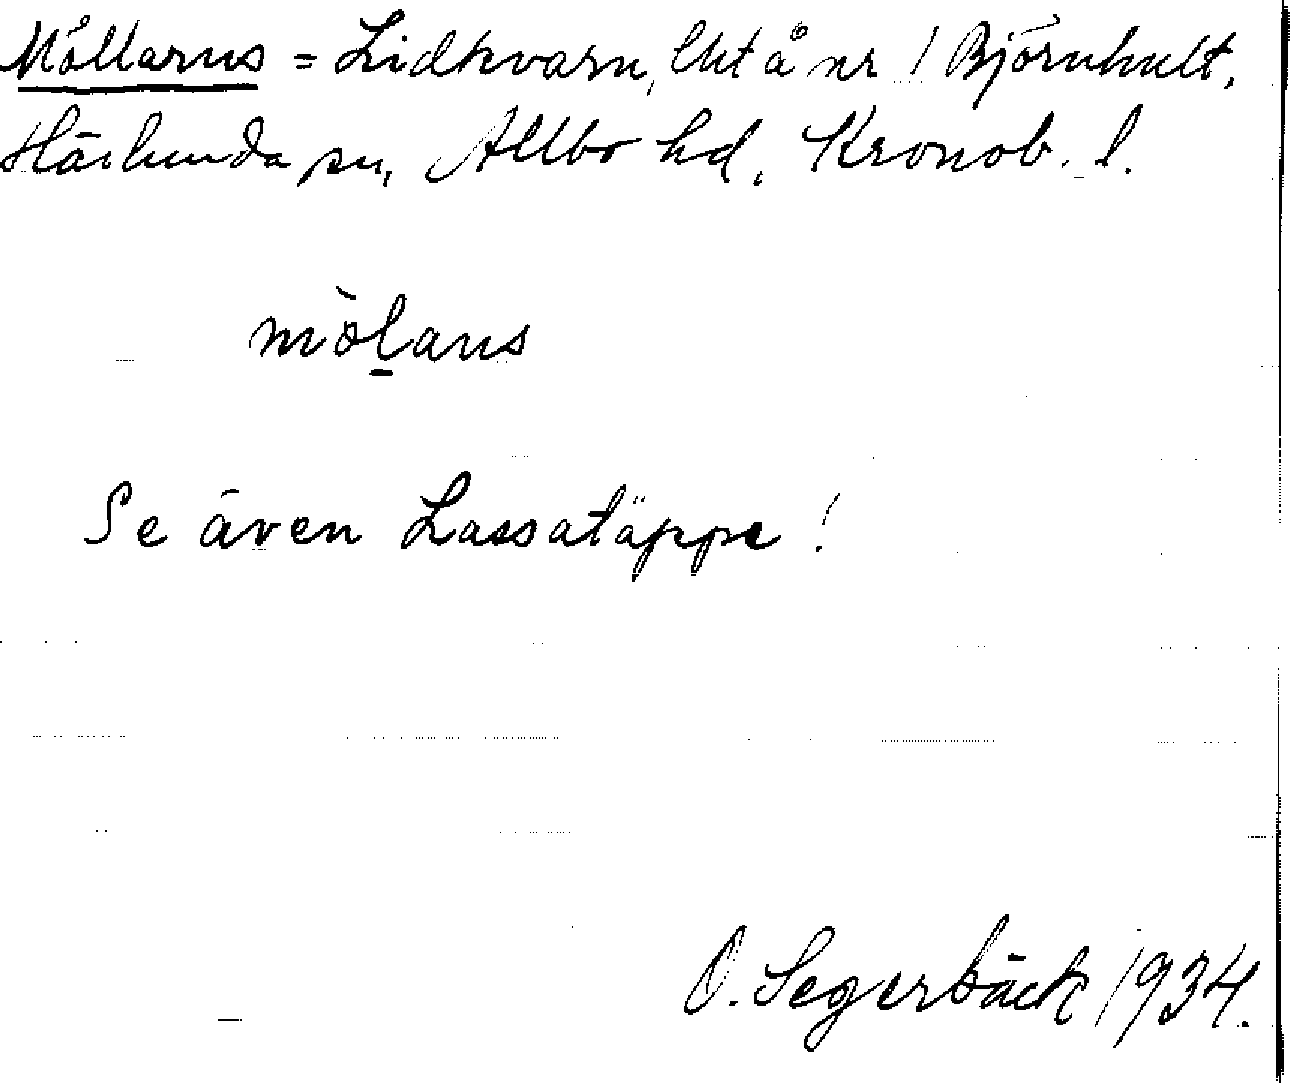 Mållarns = Lidkvarn, lht å nr 1 Björnhult,
Härlunda sn, Allbo hd, Kronob. l.
mòlans
Se även Lassatäppe!
O. Segerbäck 1934.